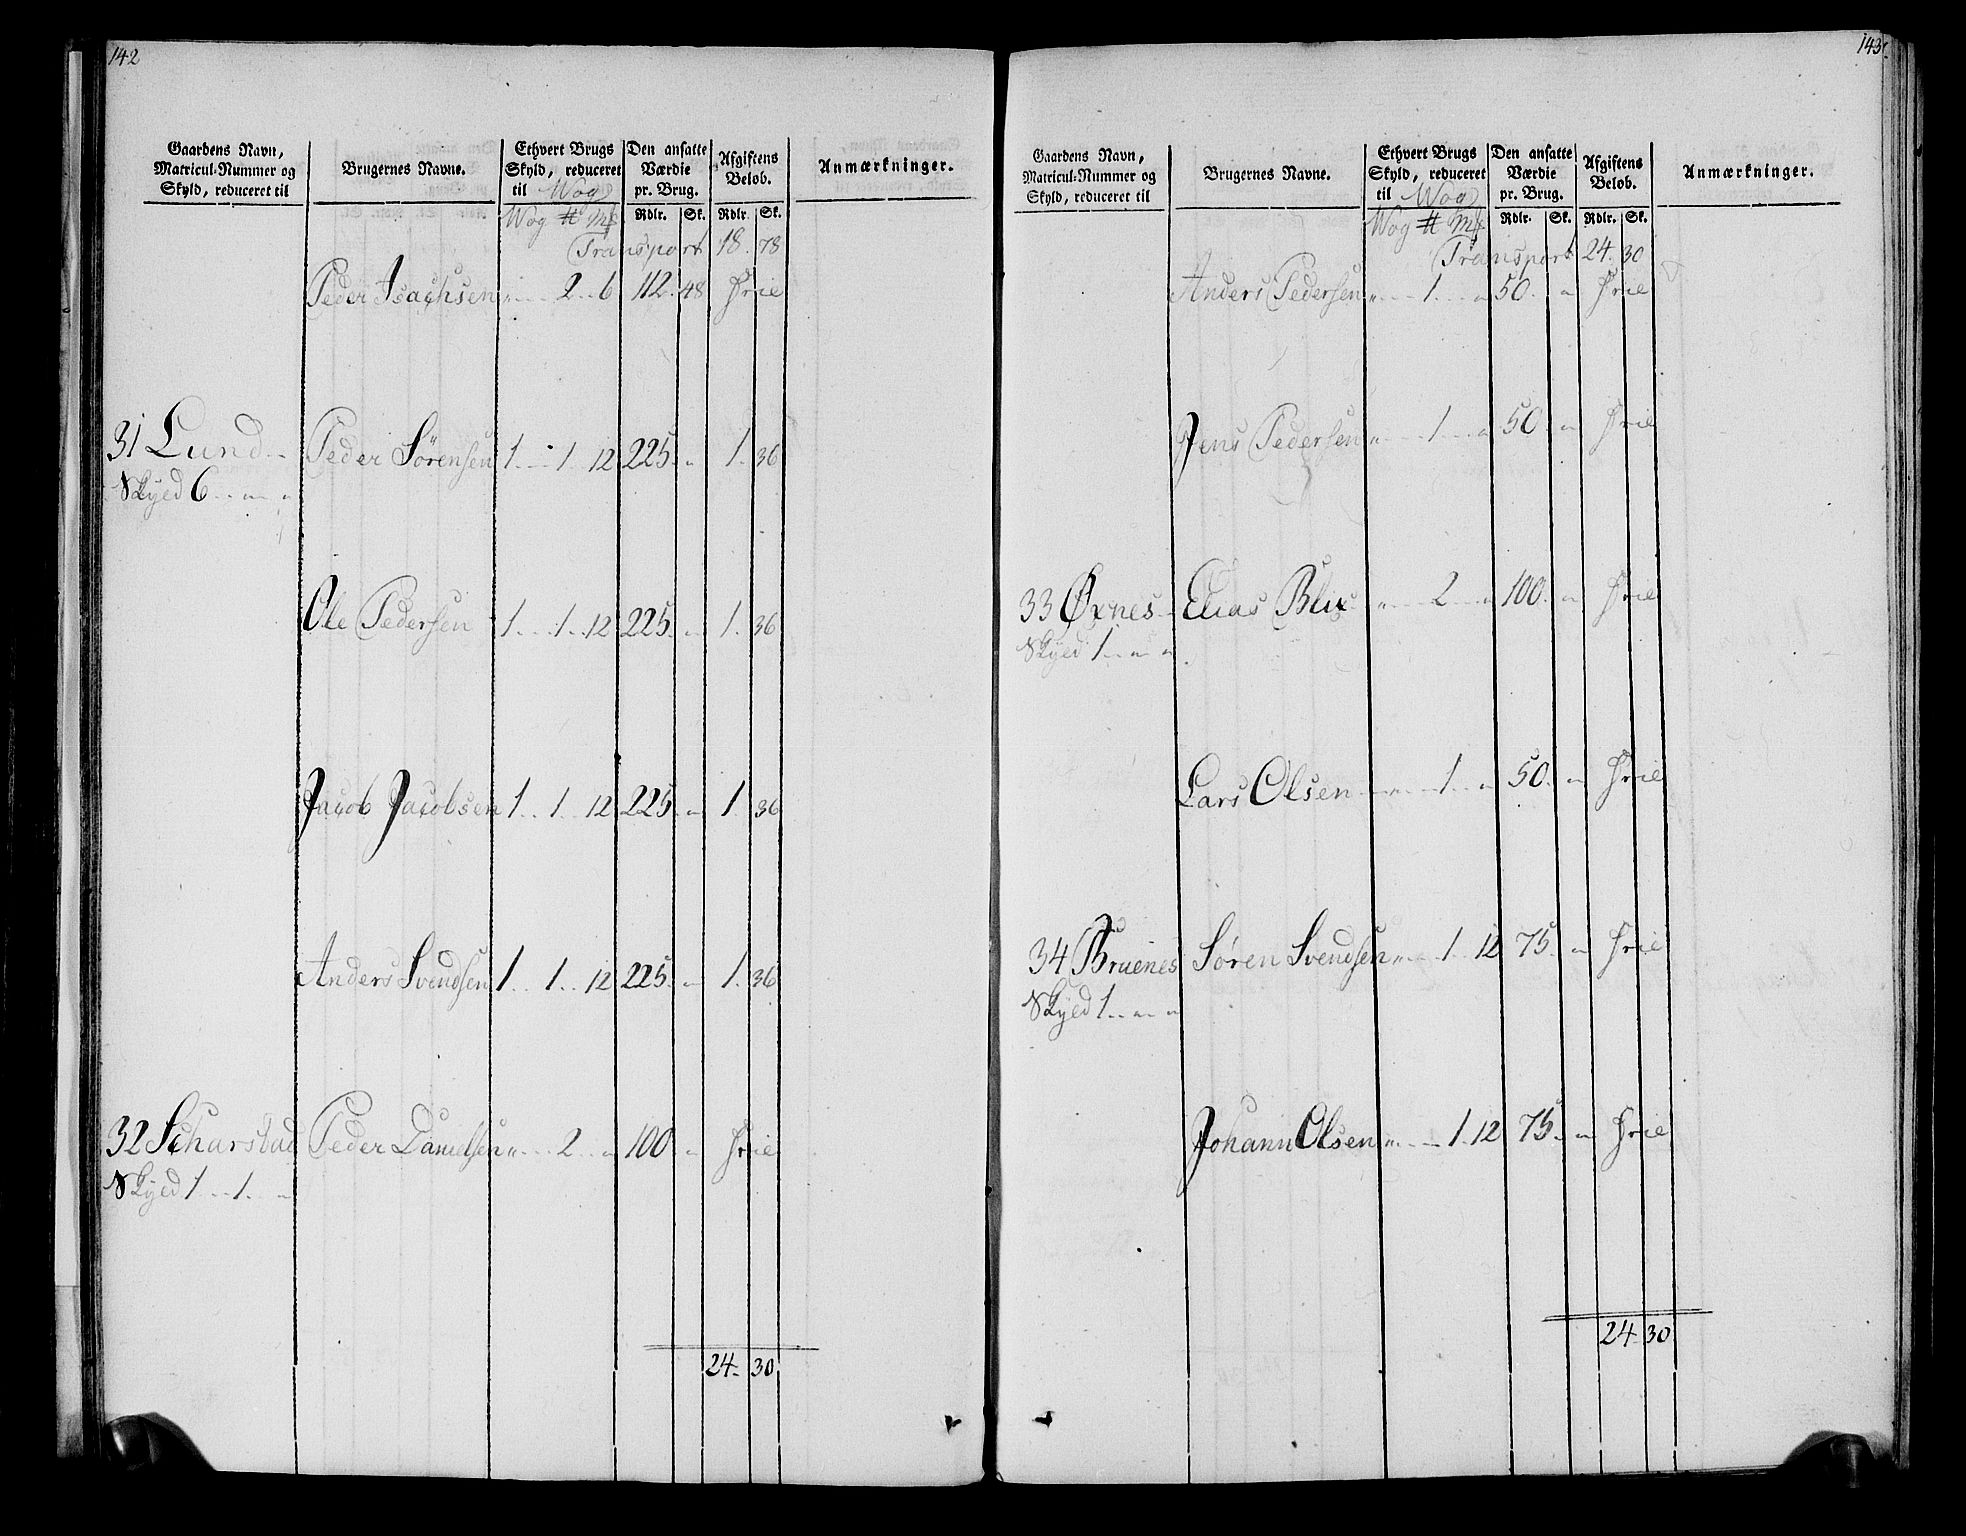 142
Gaardens Navn, Matricul-Nummer og Skyld, reduceret til | Brugernes Navne. | Ethvert Brugs Skyld, reduceret til Wog | Den ansatte Værdie pr. Brug. | Afgiftens Belob. | Anmærkninger.
Wog # Mk | Rdlr. | Sk. | Rdlr. | Sk.
Transport 18. 78
Peder Isachsen " 2 6 112. 48 Frie
31 Lund Peder Sörensen 1 1 12 225 " 1. 36
Skyld 6 " "
Ole Pedersen 1 1 12 225 " 1. 36
Jacob Jacobsen 1 1 12 225 " 1. 36
Anders Svendsen 1 1 12 225 " 1. 36
32 Scharstad Peder Danielsen " 2 " 100 " Frie
Skyld 1 1 "
24 30
143
Gaardens Navn, Matricul-Nummer og Skyld, reduceret til | Brugernes Navne. | Ethvert Brugs Skyld, reduceret til Wog | Den ansatte Værdie pr. Brug. | Afgiftens Belob. | Anmærkninger.
Wog # Mk | Rdlr. | Sk. | Rdlr. | Sk.
Transport 24. 30
Anders Pedersen " 1 " 50. " Frie
Jens Pedersen " 1 " 50 " Frie
33 Øxnes Elias Blix " 2 " 100. " Frie
Skyld 1 " "
Lars Olsen " 1 " 50. " Frie
34 Bruenes Søren Svendsen " 1 12 75. " Frie
Skyld 1 " "
Johann Olsen " 1 12 75. " Frie
24 30